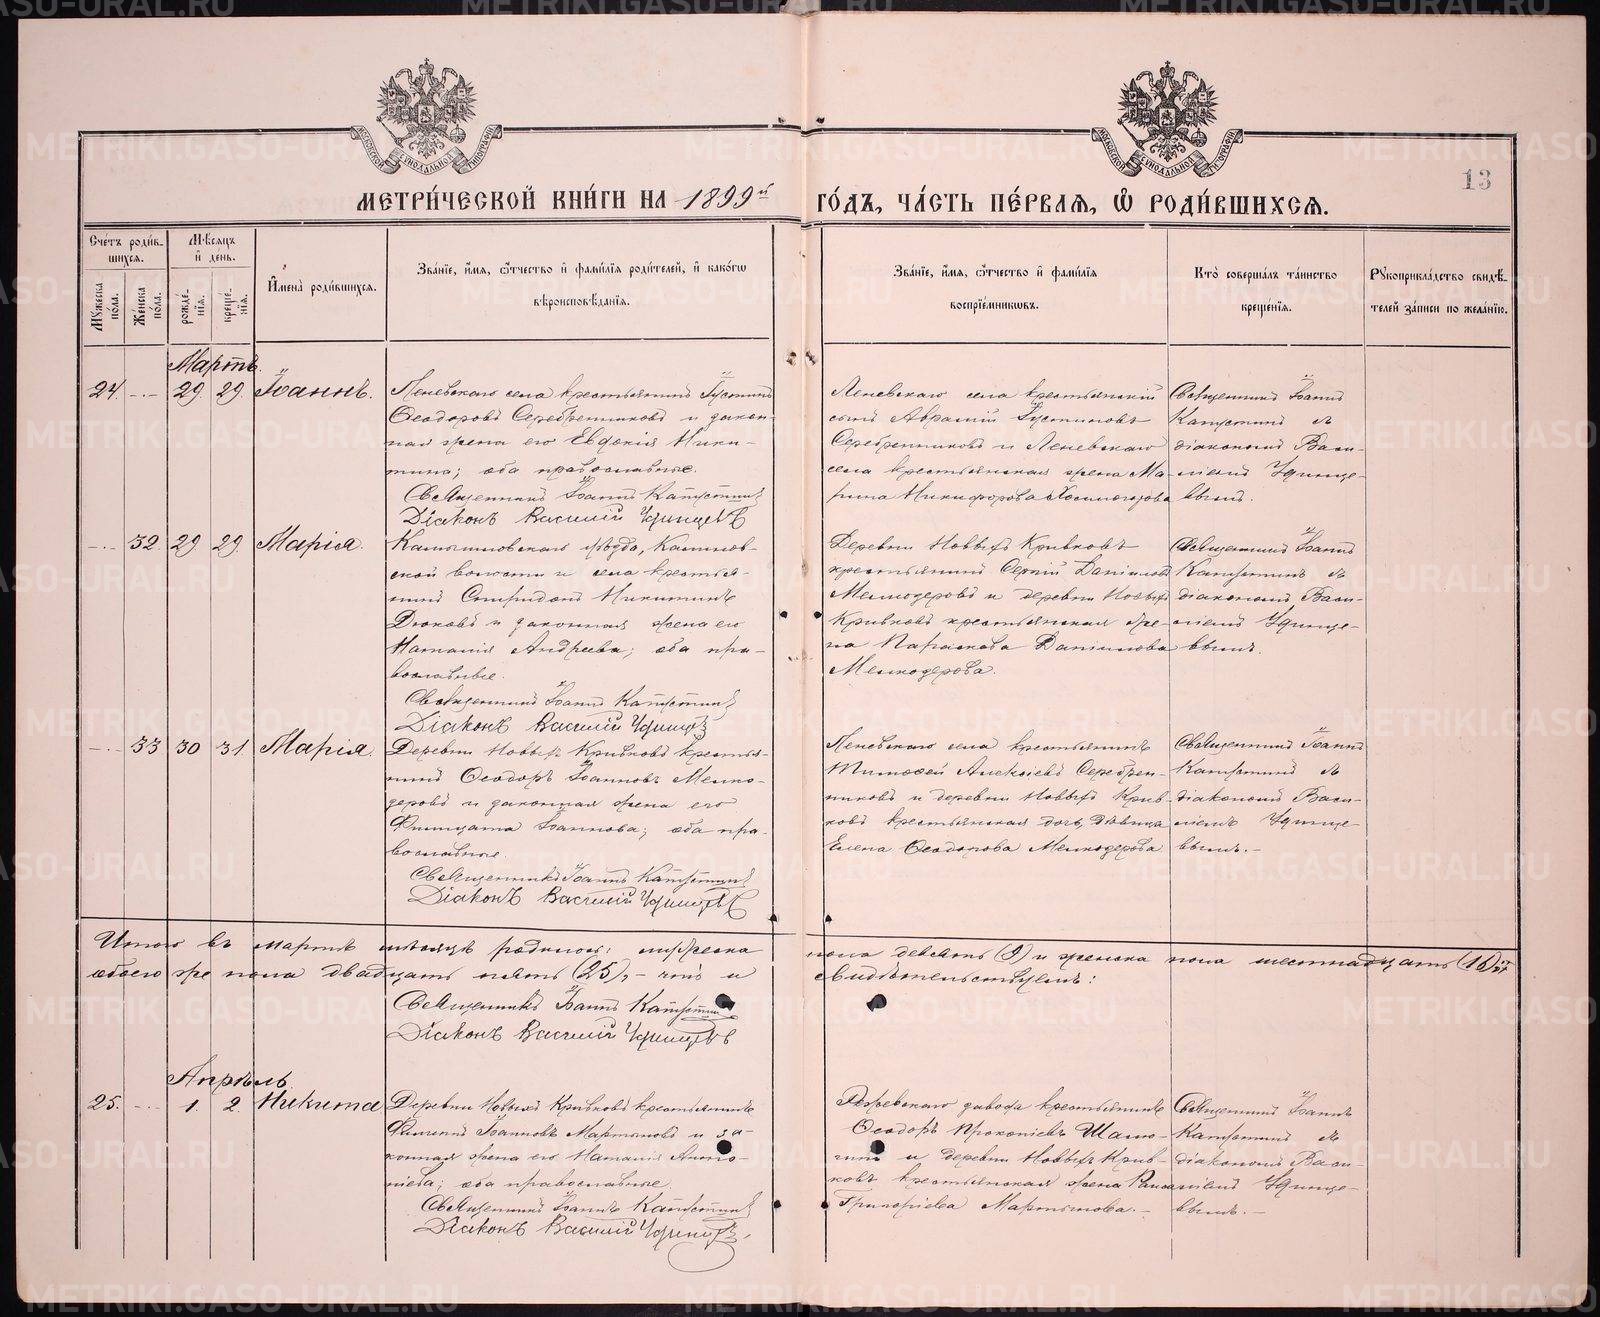 МЕТРИ́ЧЕСКОЙ КНИ́ГИ НА 1899й ГО́ДЪ, ЧА́СТЬ ПЕ́РВАѦ, Ѽ РОДИ́ВШИХСѦ.
13
Сче́тъ роди́в-
шихсѧ.
Мꙋ́жеска по́ла.
Же́нска по́ла.
Мѣ́сѧцъ и де́нь.
рожде́-
нїѧ.
креще́-
нїѧ.
И҆мена̀ роди́вшихсѧ.
Зва́нїе, и҆́мѧ, ѻ҆́тчество и҆ фами́лїѧ роди́телей, и҆ како́гѡ
вѣроисповѣ́данїѧ.
Зва́нїе, и҆́мѧ, ѻ҆́тчество и҆ фами́лїѧ
воспрїе́мниковъ.
Кто̀ соверша́лъ та́инство
креще́нїѧ.
Рꙋкоприкла́дство свидѣ́-
телей за́писи по жела́нїю.
Мартъ.
24. -.- 29 29 Іоаннъ.
Леневскаго села крестьянинъ Іустинъ
Ѳеодоровъ Серебренниковъ и закон-
ная жена его Евдокія Ники-
тина; оба православные.
Священникъ Іоаннъ Капустинъ
Діаконъ Василій Удинцевъ
Леневскаго села крестьянскій
сынъ Аврамій Іустиновъ
Серебренниковъ и Леневскаго
села крестьянская жена Ма-
рина Никифорова Холмогорова
Священникъ Іоаннъ
Капустинъ съ
діакономъ Васи-
ліемъ Удинце-
вымъ.
-.- 32 29 29 Марія.
Камышловскаго уѣзда,
ской волости и села крестья-
нинъ Спиридонъ Никитинъ
Дюковъ и законная жена его
Наталія Андреева; оба пра-
вославные.
Священникъ Іоаннъ Капустинъ
Діаконъ Василій Удинцевъ
Деревни Новыхъ Кривковъ
крестьянинъ Сергій Даніиловъ
Мелкозеровъ и деревни Новыхъ
Кривковъ крестьянская же-
на Параскева Даніилова
Мелкозерова.
Священникъ Іоаннъ
Капустинъ съ
діакономъ Васи-
ліемъ Удинце-
вымъ.
-.- 33 30 31 Марія.
Деревни Новыхъ Кривковъ крестья-
нинъ Ѳеодоръ Іоанновъ Мелко-
зеровъ и законная жена его
Филицата Іоаннова; оба пра-
вославные.
Священникъ Іоаннъ Капустинъ
Діаконъ Василій Удинцевъ
Леневскаго села крестьянинъ
Тимоѳей Алексіевъ Серебрен-
никовъ и деревни Новыхъ Крив-
ковъ крестьянская дочь, дѣвица
Елена Ѳеодорова Мелкозерова
Священникъ Іоаннъ
Капустинъ съ
діакономъ Васи-
ліемъ Удинце-
вымъ.-
Итого въ мартѣ мѣсяцѣ родилось: мужеска пола девять (9) и женска пола шестнадцать (16),
обоего же пола двадцать пять (25), - что и свидѣтельствуемъ:
Священникъ Іоаннъ Капустинъ
Діаконъ Василій Удинцевъ
Апрѣль.
25. -.- 1. 2. Никита
Деревни Новыхъ Кривковъ крестьянинъ
Іоанновъ Мартьяновъ и за-
конная жена его Наталія Анто-
ніева; оба православные.
Священникъ Іоаннъ Капустинъ
Діаконъ Василій Удинцевъ
Режевскаго завода крестьянинъ
Ѳеодоръ Прокопіевъ
и деревни Новыхъ Крив-
ковъ крестьянская жена
Григоріева Мартьянова. -
Священникъ Іоаннъ
Капустинъ съ
діакономъ Васи-
ліемъ Удинце-
вымъ. -
METRIKI.GASO-URAL.RU